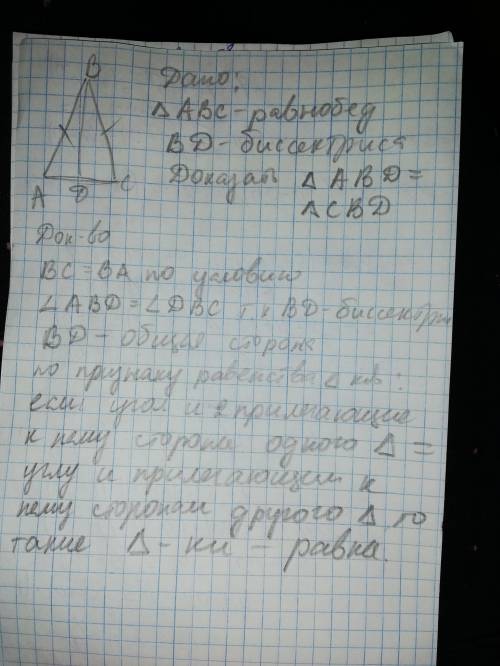 B
A D C
Дано:
△ABC - равнобед
BD - биссектриса
Доказать △ABD =
△CBD
Док-во
BC = BA по условию
∠ABD = ∠DBC т к BD - биссектри
BD - общая сторона
по признаку равенства △ ков:
если угол и 2 прилегающие
к нему стороны одного △ =
углу и прилегающим к
нему сторонам другого △ то
такие △ - ки - равна.